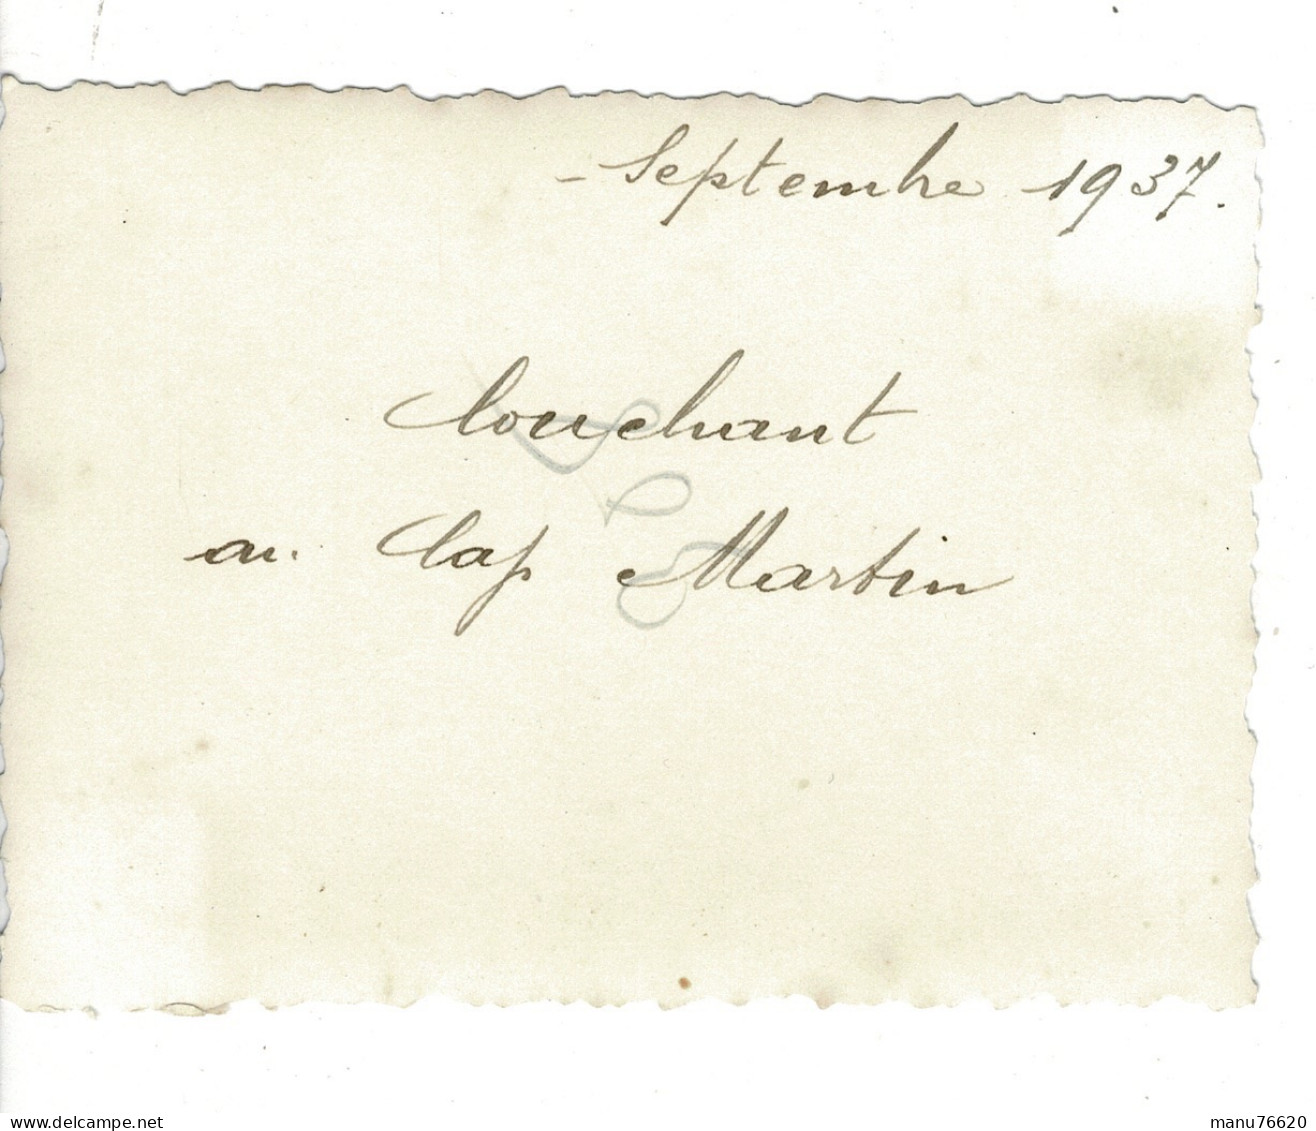 - Septembre 1937.
Couchant
au Cap Martin
www.delcampe.net
manu76620